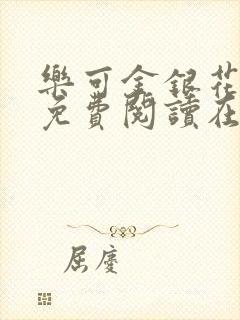 樂可金銀花
免費閱讀在
屈慶